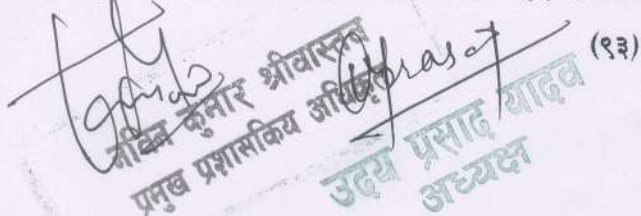 (९३)
नविन कुमार श्रीवास्तव
प्रमुख प्रशासकिय अधिकृत
उदय प्रसाद यादव
अध्यक्ष